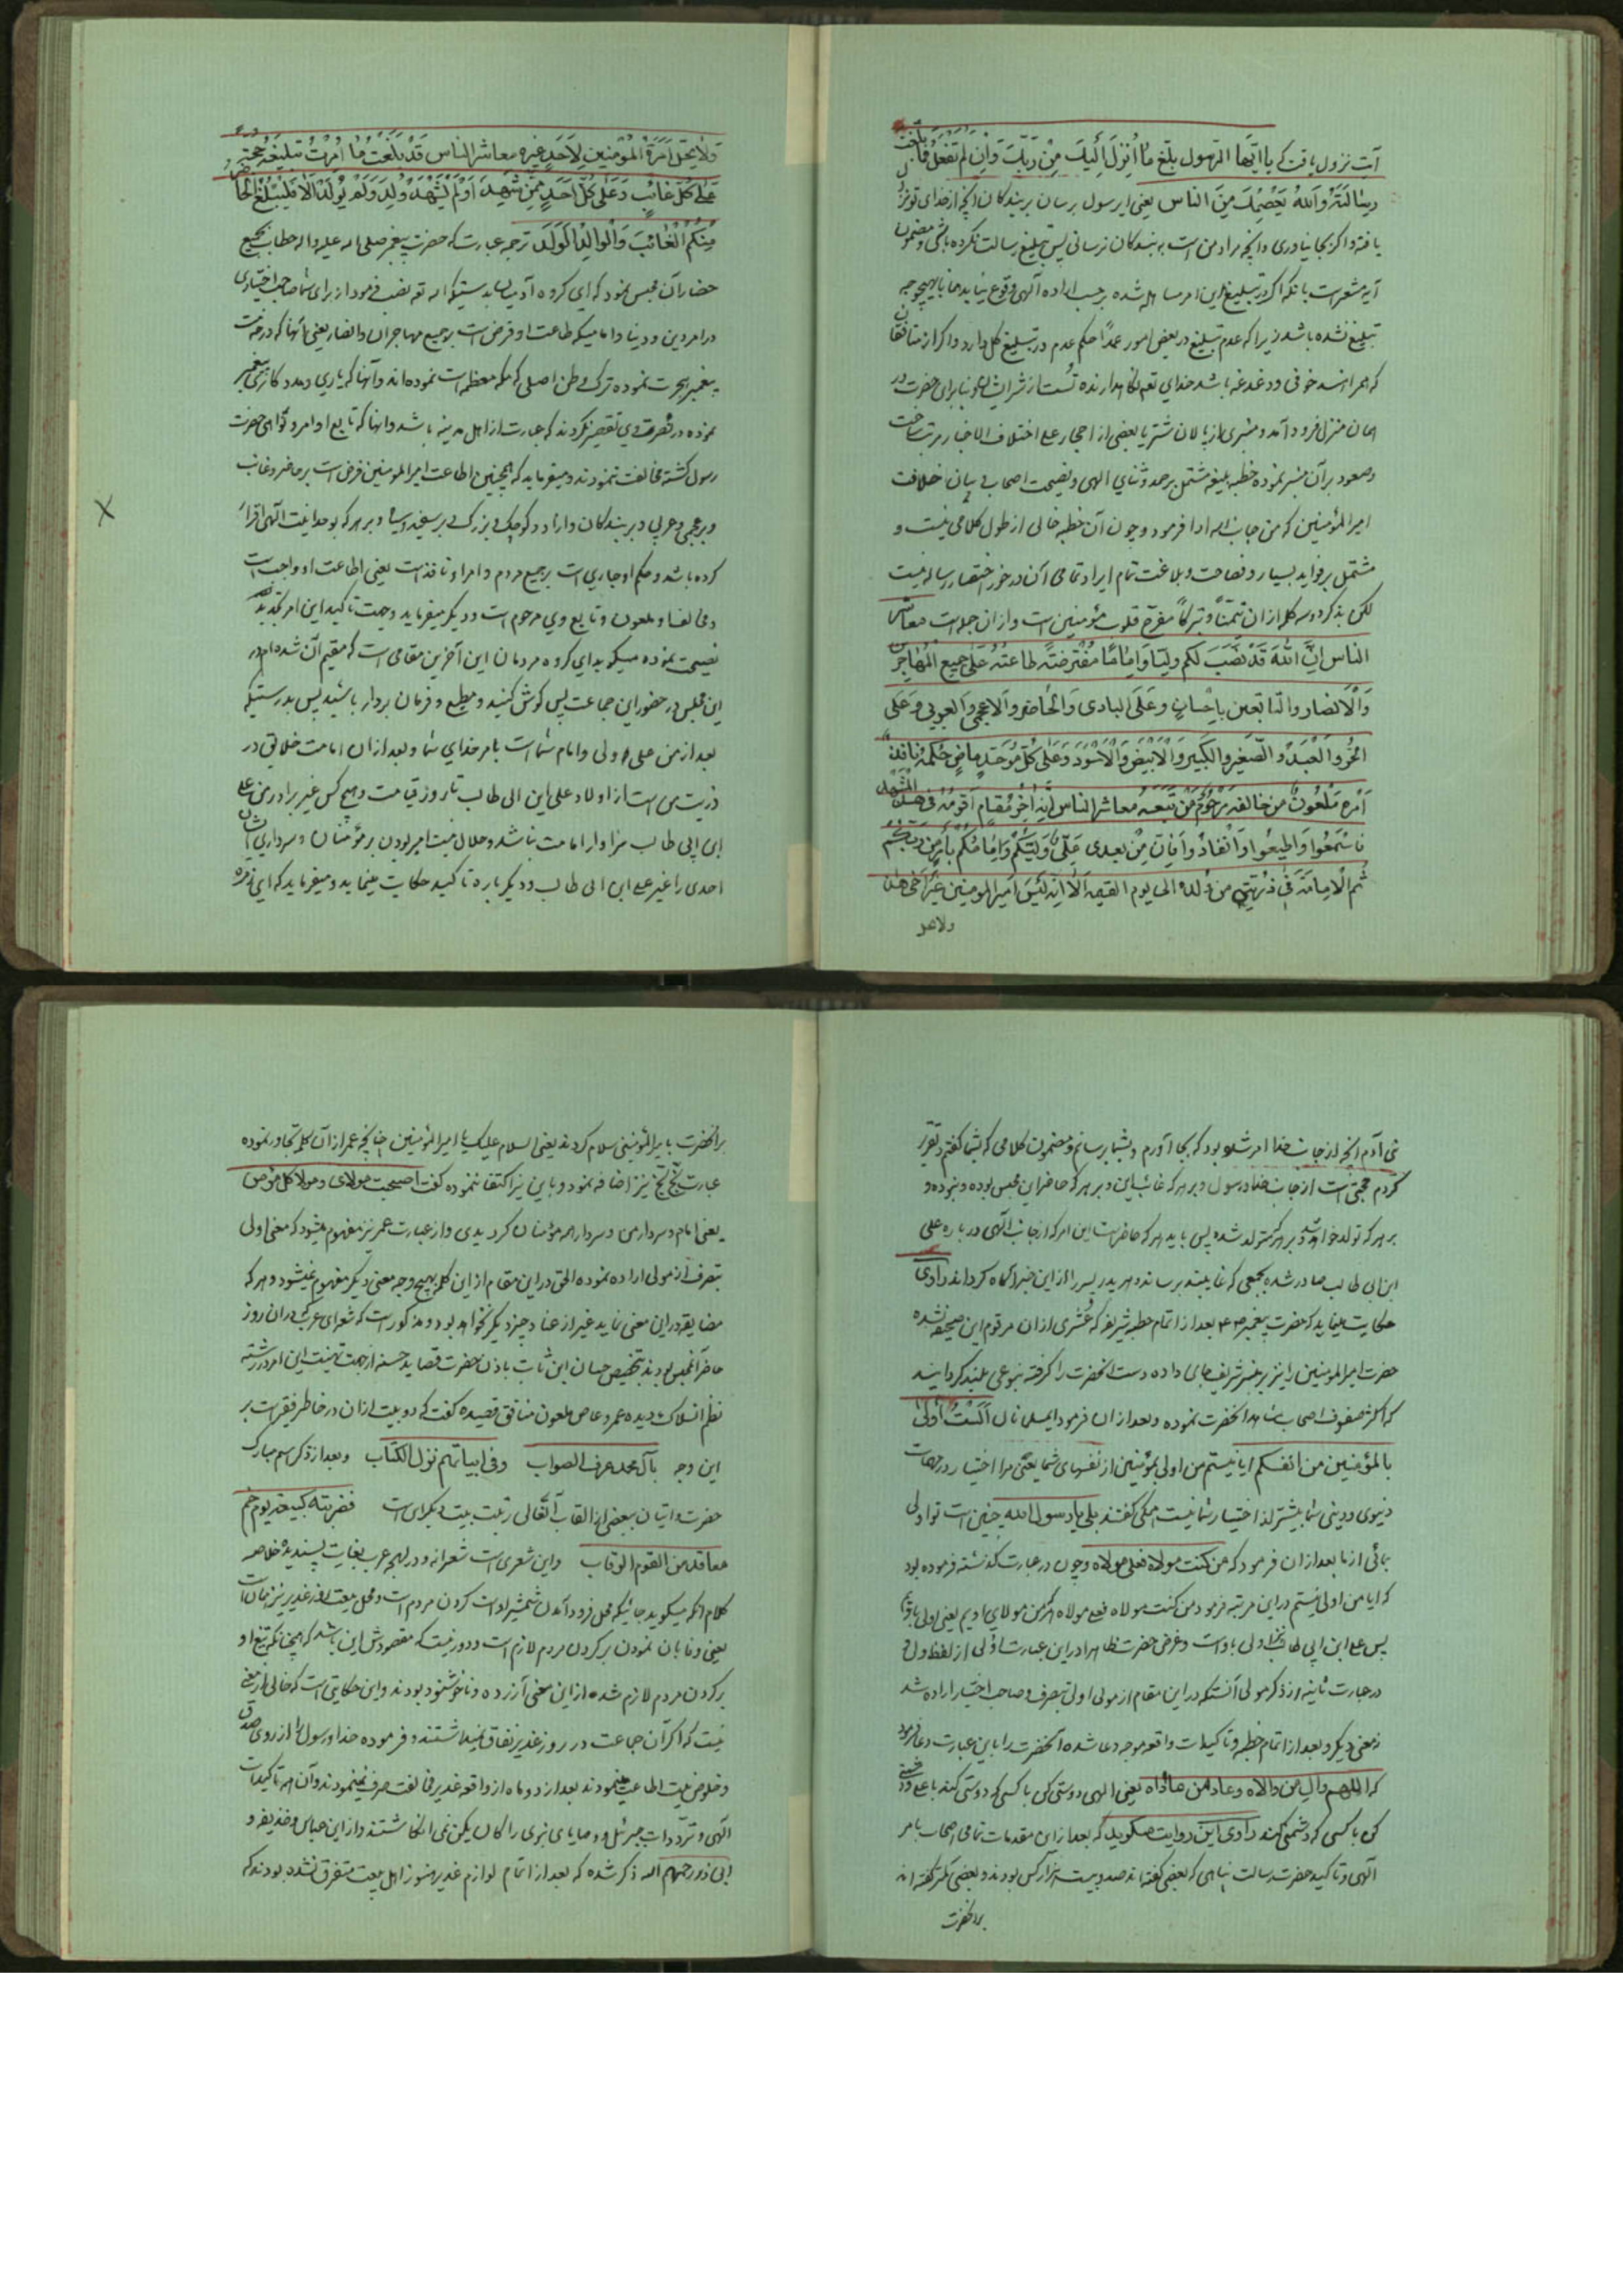 آیت نزول یافت که یا ایّها الرّسول بلّغ ما اُنزل اِلیک مِنْ ربّک وَاِن لم تفعل فما بلّغت
رسالتَهُ وَاللهُ یَعصِمُکَ مِنَ الناس یعنی ای رسول برسان بر بندکان انچه از خدای تو نزول
یافته و اکر بجا نیاوری و انچه مراد من است به بندکان نرسانی پس تبلیغ رسالت نکرده باشی و مضمون
آیه مشعر است بانکه اکر در تبلیغ این امر مساهله شده بر حسب اراده آلهی وقوع نیابد همانا بهیچوجه
تبلیغ نشده باشد زیرا که عدم تبلیغ در بعض امور عمداً حکم عدم در تبلیغ کل دارد و اکر از منافقان
که همراهند خوفی و دغدغه باشد خدای تعه نکاهدارنده تُست از شر ایشان بنابرای حضرت در
همان منزل فرود آمده و منبری از پالان شتر یا بعضی از احجار علی اختلاف الاخبار مرتب ساخت
و صعود بر آن منبر نموده خطبه بلیغه مشتمل بر حمد و ثنای الهی و نصیحت اصحاب فی بیان خلافت
امیر المؤمنین که من جانب الله ادا فرمود و چون آن خطبه خالی از طول کلامی نیست و
مشتمل بر فواید بسیار و فصاحت و بلاغت تمام ایراد تمامی آن در خور اختصار رساله نیست
لکن بذکر دو سه کلمه از ان تیمّناً و تبرّکاً مفرّح قلوب مؤمنین است و از ان جمله است معاشر
الناس اِنَّ اللهَ قَدْ نَصَبَ لکم ولیّا وَاِمامًا مُفْتَرضَتَه طاعتُهُ عَلی جمیع المُهاجِرین
وَالْاَنصار والتابعین باِحسانٍ وعَلَی البادی وَالحاضر وَالاعجمی والعربی وعَلی
الحُرّ وَالعَبْد والصّغیر والکبیر وَالاَبیض وَالاَسْوَد وَعَلی کلّ مُوَحّدٍ ماضٍ حُکمُهُ نافذ
اَمْره مَلعُونٌ من خالفه مَرْحُومٌ مَن تَبَعَهُ معاشر الناس اِنّه اٰخِرُ مُقام اَقومُهُ فی هذا المشهد
فاسْمَعُوا وَاَطیعُوا وَانْقادُوا فَاِنّ مِنْ بعدی عَلِیٌّ وَلیّکُمْ وَاِمامُکُم باَمرٍ مِن ربّکُم
ثُم الْاِمامَةُ فی ذُرّیّتی من وُلدِهِ الی یوم القیمة اَلا اِنّه لَیْسَ اَمیرالمومنین غیرَ اَخی هذا
ولا تحل
وَلا تَحِلّ اَمَرَةُ المُؤْمنین لِاَحَدٍ غیره معاشر الناس قَدْ بَلَغتُ ما اُمِرْتُ تبلیغَه حجة
عَلی کلّ غائبٍ وَعَلی کُلّ اَحَدٍ مِمّن شَهِدَ اَوْ لَم یُشْهَدْ وُلِدَ وَلَمْ یُولَدْ اَلا فَلْیُبَلِّغُ الحاضر
مِنْکُمُ الْغائبَ وَالْوالِدُ الْوَلَدَ ترجمه عبارت که حضرت پیغمبر صلی الله علیه واله خطاب بجمیع
حضار آن مجلس نمود که ای کروه آدمیان بدرستیکه الله تعه نصب فرمود از برای شما صاحب اختیاری
در امر دین و دنیا و امامیکه طاعت او فرض است بر جمیع مهاجران و انصار یعنی بآنها که در خدمت
پیغمبر هجرت نموده ترک وطن اصلی که مکه معظمه است نموده اند و آنها که یاری و مددکاری پیغمبر
نموده در نصرت وی تقصیر نکردند که عبارت از اهل مدینه باشد و انها که تابع اوامر و نواهی حضرت
رسول کشته مخالفت ننمودند و میفرماید که همچنین اطاعت امیرالمومنین فرض است بر حاضر و غایب
و بر عجمی و عربی و بر بندکان و ازاد و کوچک و بزرک و بر سفید و سیاه و بر هر که بوحدانیت آلهی اقرار
کرده باشد و حکم او جاری است بر جمیع مردم و امر او نافذ است یعنی اطاعت او واجب است
و مخالف او ملعون و تابع وی مرحوم است و دیکر میفرماید و جهت تاکید این امر بتجدید
نصیحت نموده میکوید ای کروه مردمان این آخرین مقامی است که مقیم آن شده ام در
این مجلس در حضور این جماعت پس کوش کنید و مطیع و فرمان بردار باشید پس بدرستیکه
بعد از من علی ولی و امام شماست بامر خدای شما و بعد از ان امامت خلایق در
ذریت من است از اولاد علی ابن ابی طالب تا روز قیامت و هیچ کس غیر برادر من علی
ابن ابی طالب سزاوار امامت نباشد و حلال نیست امیر بودن بر مؤمنان و سرداری ایشان
احدی را غیر علی ابن ابی طالب و دیکر باره تاکید حکایت مینماید و میفرماید که ای زمره
بنی آدم آنچه از جانب خدا امر شده بود که بجا آورم و بشما برسانم و مضمون کلامی که بشما کفتم و تقریر
کردم حجتی است از جانب خدا و رسول و بر هر که غائب این و بر هر که حاضر این مجلس بوده و نبوده و
بر هر که تولد خواهد شد و بر هر که متولد شده پس باید هر که حاضر است این امر که از جانب الهی در باره علی
ابن ابی طالب صادر شده بجمعی که غایبند برساند و هر پدر پسر را از این خبر اکاه کرداند راوی
حکایت مینماید که حضرت پیغمبر بعد از اتمام خطبه شریفه که عُشری از ان مرقوم این صحیفه شده
حضرت امیرالمومنین را نیز بر منبر شریف جای داده دست انحضرت را کرفته بنوعی بلند کردانید
که اکثر صفوف اصحاب مشاهده انحضرت نموده و بعد از ان فرمود ایها الناس اَلَسْتُ اَولی
بالمؤمنین من انفسکم ایا نیستم من اولی بمؤمنین از نفسهای شما یعنی مرا اختیار در مهمات
دنیوی و دینی شما بیشتر از اختیار شما نیست همکی کفتند بلی یا رسول الله چنین است تو اولی
بمائی از ما بعد از ان فرمود که من کنت مولاه فعلی مولاه و چون در عبارت کذشته فرموده بود
که ایا من اولی نیستم در این مرتبه فرمود من کنت مولاه فعلی مولاه هر که من مولای اویم یعنی اولی باویم
پس علی ابن ابی طالب اولی باوست و غرض حضرت ظاهرا در این عبارت اولی از لفظ ولی
در عبارت ثانیه از ذکر مولی آنستکه در این مقام از مولی اولی بتصرف و صاحب اختیار اراده شد
نه معنی دیکر و بعد از اتمام خطبه و تاکیدات واقعه موجه دعا شده آنحضرت را باین عبارت دعا فرمود
که اللهم وال من والاه وعاد من عاداه یعنی الهی دوستی کن با کسی که دوستی کند با علی و دشمنی
کن با کسی که دشمنی کند راوی این روایت میکوید که بعد از این مقدمات تمامی اصحاب بامر
آلهی و تاکید حضرت رسالت پناهی که بعضی کفته اند صد و بیست هزار کس بودند و بعضی کمتر کفته اند
بر انحضرت
بر انحضرت بامیرالمؤمنینی سلام کردند یعنی السلام علیک یا امیرالمؤمنین چنانچه عمر از آن کلمه تجاوز نموده
عبارت بَخّ بَخّ نیز اضافه نمود و باین نیز اکتفا ننموده کفت اصبحت مولای ومولا کل مؤمن
یعنی امام و سردار من و سردار همه مؤمنان کردیدی و از عبارت عمر نیز مفهوم میشود که معنی اولی
بتصرف از مولی اراده نموده الحق در این مقام از این کلمه بهیچ وجه معنی دیکر مفهوم نمیشود و هر که
مضایقه در این معنی نماید غیر از عناد چیز دیکر نخواهد بود و مذکور است که شعرای عرب که در ان روز
حاضر آنمجلس بودند بتخصیص حسان ابن ثابت باذن حضرت قصاید حسنه از جهت تهنیت این امر در رشته
نظم انسلاک دیده عمرو عاص ملعون منافق قصیده کفت که دو بیت از ان در خاطر فقیر است بر
این وجه بآل محمد عرف الصواب وفی ابیاتهم نزل الکتاب وبعد از ذکر اسم مبارک
حضرت و اتیان بعضی از القاب آنتعالی رتبت بیت دیکر این است فضربته کبیعته بیوم خم
معاقدها من القوم الرقاب واین شعری است شعرانه و در لهجه عرب بغایت پسندیده خلاصه
کلام آنکه میکوید جائیکه محل فرود آمدن شمشیر اوست کردن مردم است و محل بیعت روز غدیر نیز همان است
یعنی و نمایان نمودن بر کردن مردم لازم است و دور نیست که مقصودش این باشد که همچنانکه تیغ او
بر کردن مردم لازم شده از این معنی آزرده و ناخوشنود بودند و این حکایتی است که خالی از معنی
نیست که اکر آن جماعت در روز غدیر نفاق نمیداشتند و فرموده خدا و رسول را از روی صدق
و خلوص نیت اطاعت مینمودند بعد از دو ماه از واقعه غدیر مخالفت صرف نمینمودند و آن همه تاکیدات
الهی و تردّدات جبرئیل و وصایای نبوی را کان لم یکن نمی انکاشتند و از ابن عباس و حذیفه و
ابی ذر رحمهم الله ذکر شده که بعد از اتمام لوازم غدیر هنوز اهل بیعت متفرق نشده بودند که